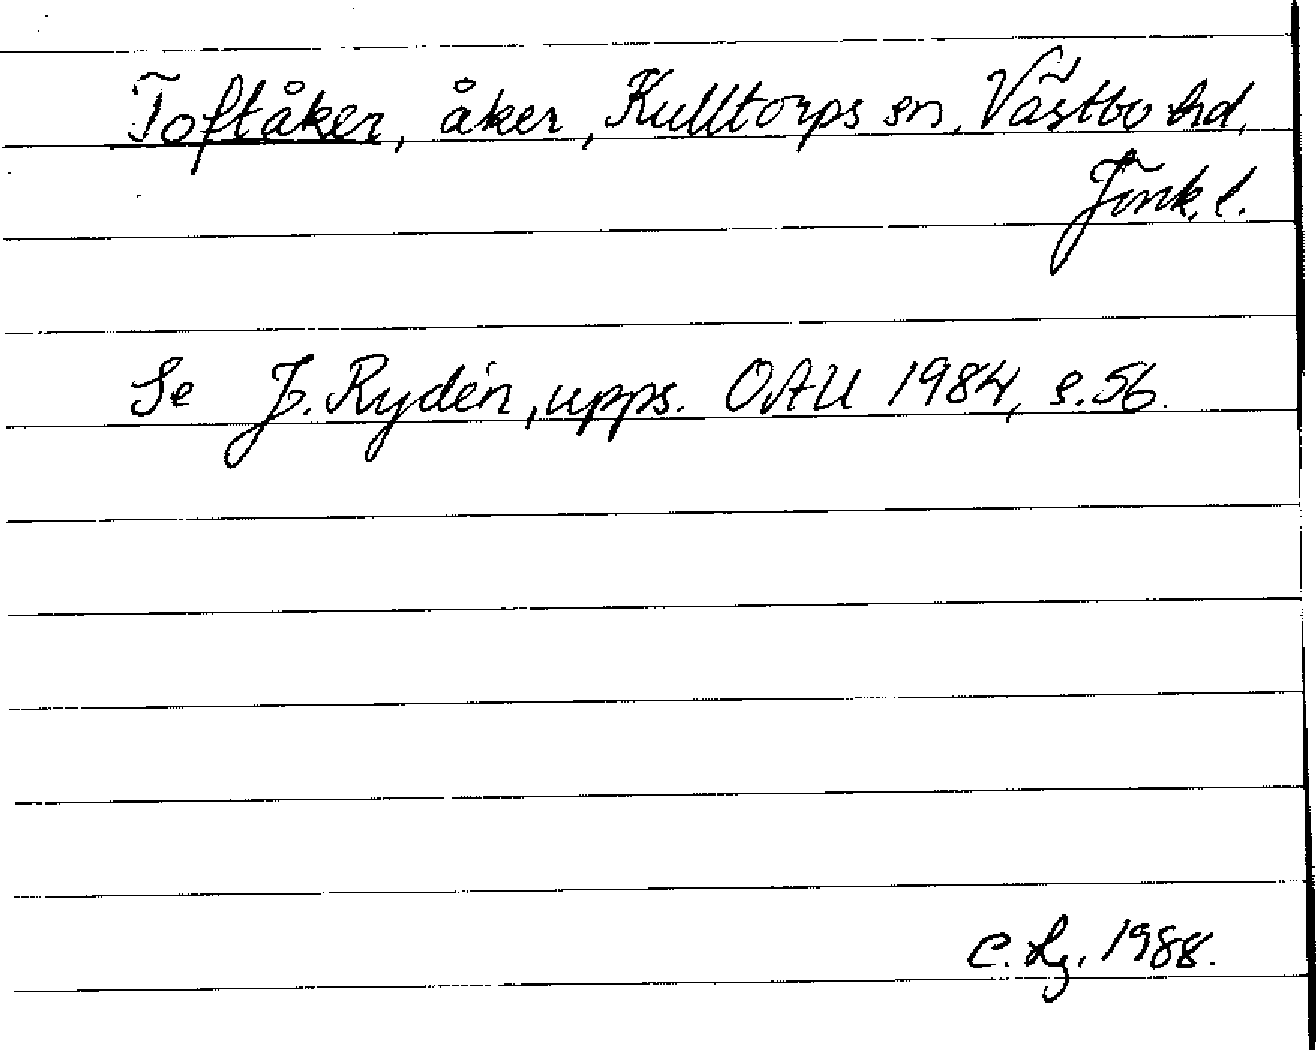 Toftåker, åker, Kulltorps sn, Västbo hd,
Jönk. l.
Se J. Rydén, upps. OAU 1984, s. 56.
C. Lg. 1988.